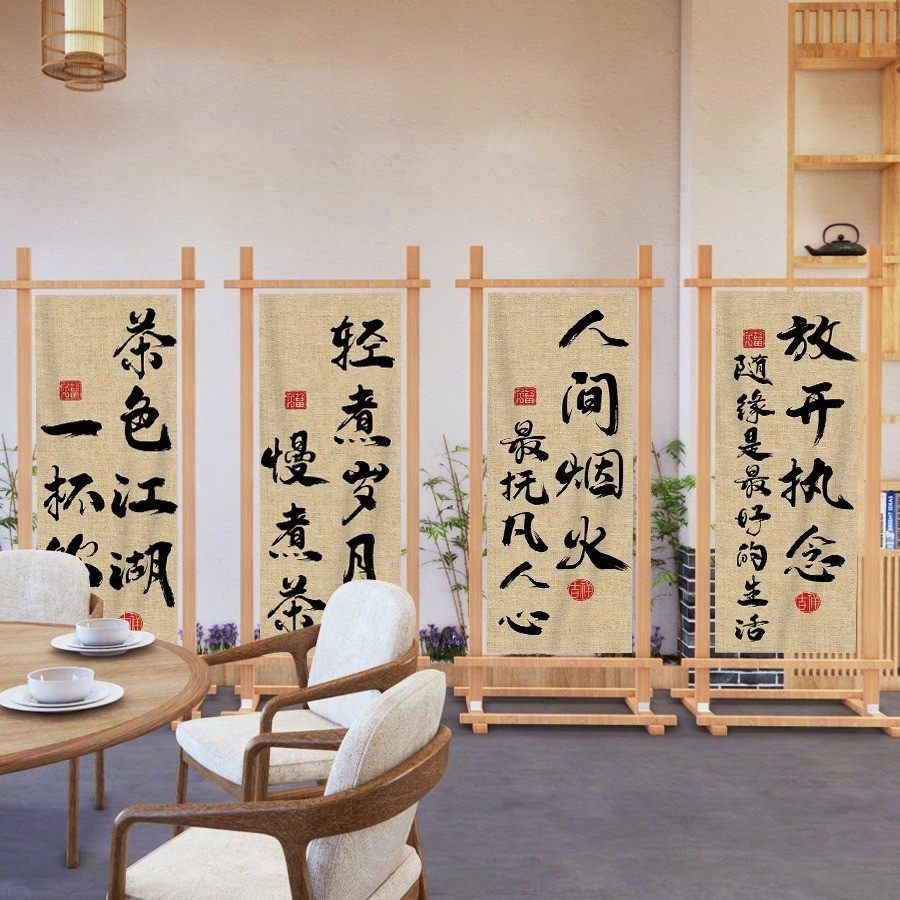 茶色江湖
一杯饮
轻煮岁月
慢煮茶
人间烟火
最抚凡人心
放开执念
随缘是最好的生活
吉祥
吉祥
BRIGHT IDEAS